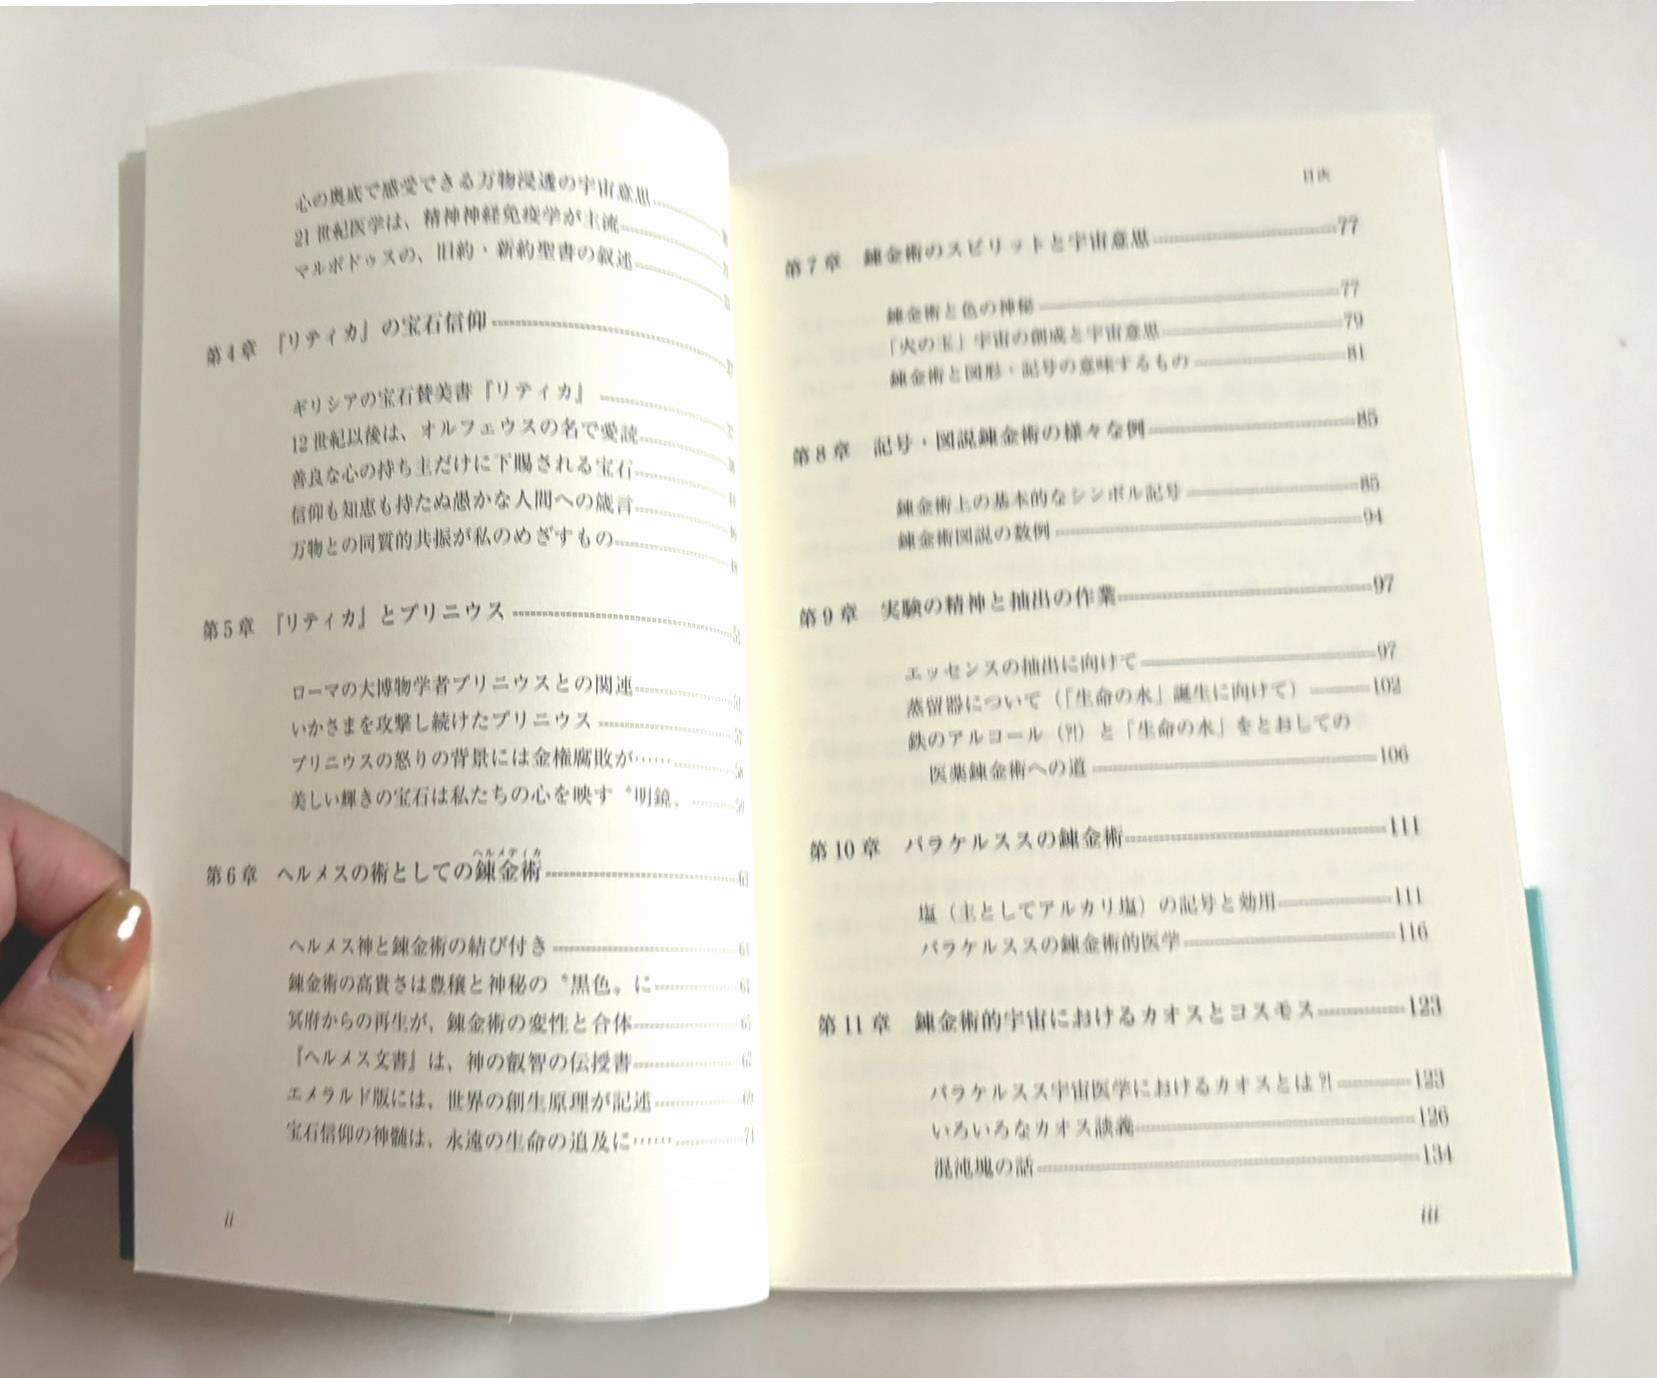 心の奥底で感受できる万物浸透の宇宙意思
21世紀医学は、精神神経免疫学が主流
マルボドゥスの、旧約・新約聖書の叙述
第4章 『リティカ』の宝石信仰
ギリシアの宝石賛美書『リティカ』
12世紀以後は、オルフェウスの名で愛読
善良な心の持ち主だけに下賜される宝石
信仰も知恵も持たぬ愚かな人間への箴言
万物との同質的共振が私のめざすもの
第5章 『リティカ』とプリニウス
ローマの大博物学者プリニウスとの関連
いかさまを攻撃し続けたプリニウス
プリニウスの怒りの背景には金権腐敗が……
美しい輝きの宝石は私たちの心を映す〝明鏡〟
ヘルメティカ
第6章 ヘルメスの術としての錬金術
ヘルメス神と錬金術の結び付き
錬金術の高貴さは豊穣と神秘の〝黒色〟に
冥府からの再生が、錬金術の変性と合体
『ヘルメス文書』は、神の叡智の伝授書
エメラルド版には、世界の創生原理が記述
宝石信仰の神髄は、永遠の生命の追及に……
ii
目次
第7章 錬金術のスピリットと宇宙意思 77
錬金術と色の神秘 77
「火の玉」宇宙の創成と宇宙意思 79
錬金術と図形・記号の意味するもの 81
第8章 記号・図説錬金術の様々な例 85
錬金術上の基本的なシンボル記号 85
錬金術図説の数例 94
第9章 実験の精神と抽出の作業 97
エッセンスの抽出に向けて 97
蒸留器について（「生命の水」誕生に向けて） 102
鉄のアルコール（?!）と「生命の水」をとおしての
医薬錬金術への道 106
第10章 パラケルススの錬金術 111
塩（主としてアルカリ塩）の記号と効用 111
パラケルススの錬金術的医学 116
第11章 錬金術的宇宙におけるカオスとコスモス 123
パラケルスス宇宙医学におけるカオスとは?! 123
いろいろなカオス談義 126
混沌塊の話 134
iii